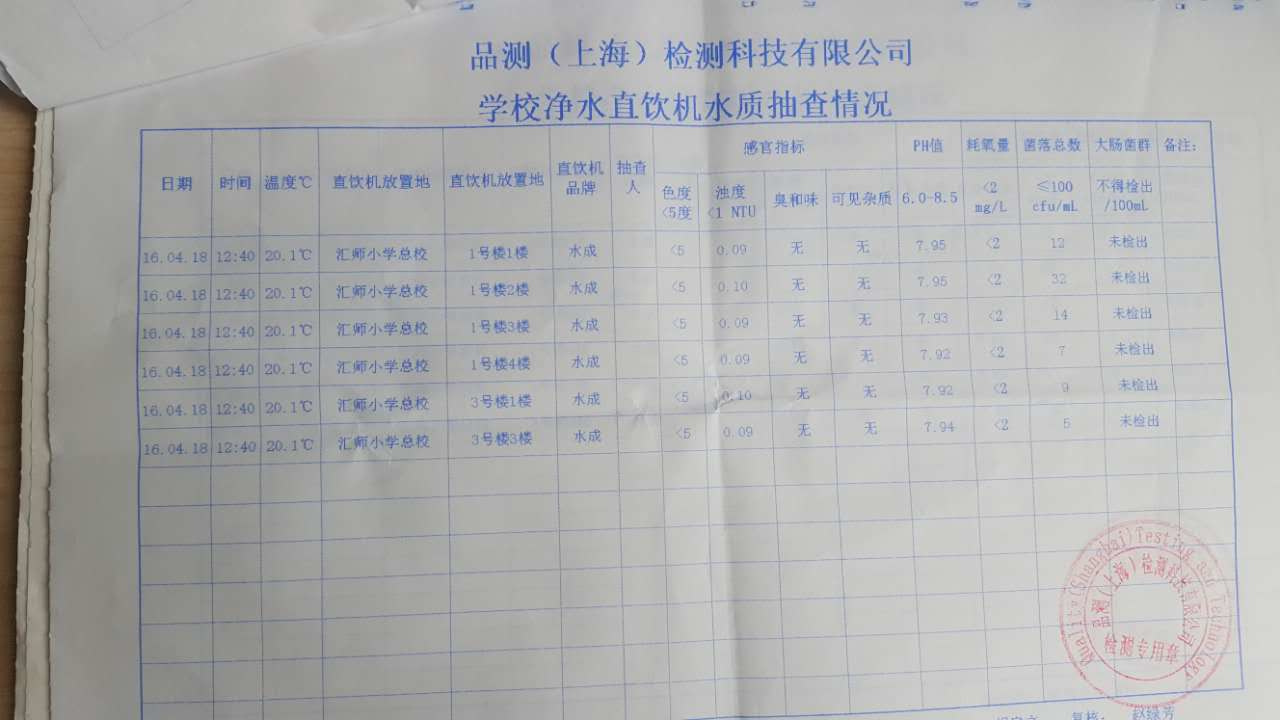 品测（上海）检测科技有限公司
学校净水直饮机水质抽查情况
日期 时间 温度℃ 直饮机放置地 直饮机放置地 直饮机品牌 抽查人 感官指标 PH值 耗氧量 菌落总数 大肠菌群 备注:
色度<5度 浊度<1 NTU 臭和味 可见杂质 6.0-8.5 <2 mg/L ≤100 cfu/mL 不得检出/100mL
16.04.18 12:40 20.1℃ 汇师小学总校 1号楼1楼 水成 <5 0.09 无 无 7.95 <2 12 未检出
16.04.18 12:40 20.1℃ 汇师小学总校 1号楼2楼 水成 <5 0.10 无 无 7.95 <2 32 未检出
16.04.18 12:40 20.1℃ 汇师小学总校 1号楼3楼 水成 <5 0.09 无 无 7.93 <2 14 未检出
16.04.18 12:40 20.1℃ 汇师小学总校 1号楼4楼 水成 <5 0.09 无 无 7.92 <2 7 未检出
16.04.18 12:40 20.1℃ 汇师小学总校 3号楼1楼 水成 <5 0.10 无 无 7.92 <2 9 未检出
16.04.18 12:40 20.1℃ 汇师小学总校 3号楼3楼 水成 <5 0.09 无 无 7.94 <2 5 未检出
(Shanghai)Testing and Technology
品测（上海）检测科技有限公司
检测专用章
复核: 赵绿芳